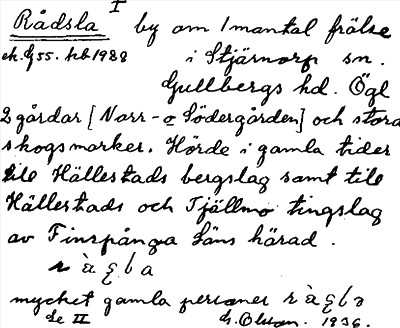 Rådsla I by om 1 mantal frälse
ek. G 55. kb 1988 i Stjärnorp sn.
Gullbergs hd. Ögl
2 gårdar [Norr- o Södergården] och stora
skogsmarker. Hörde i gamla tider
till Hällestads bergslag samt till
Hällestads och Tjällmo tingslag
av Finspånga Läns härad.
mycket gamla personer
Se II G. Olson. 1936.